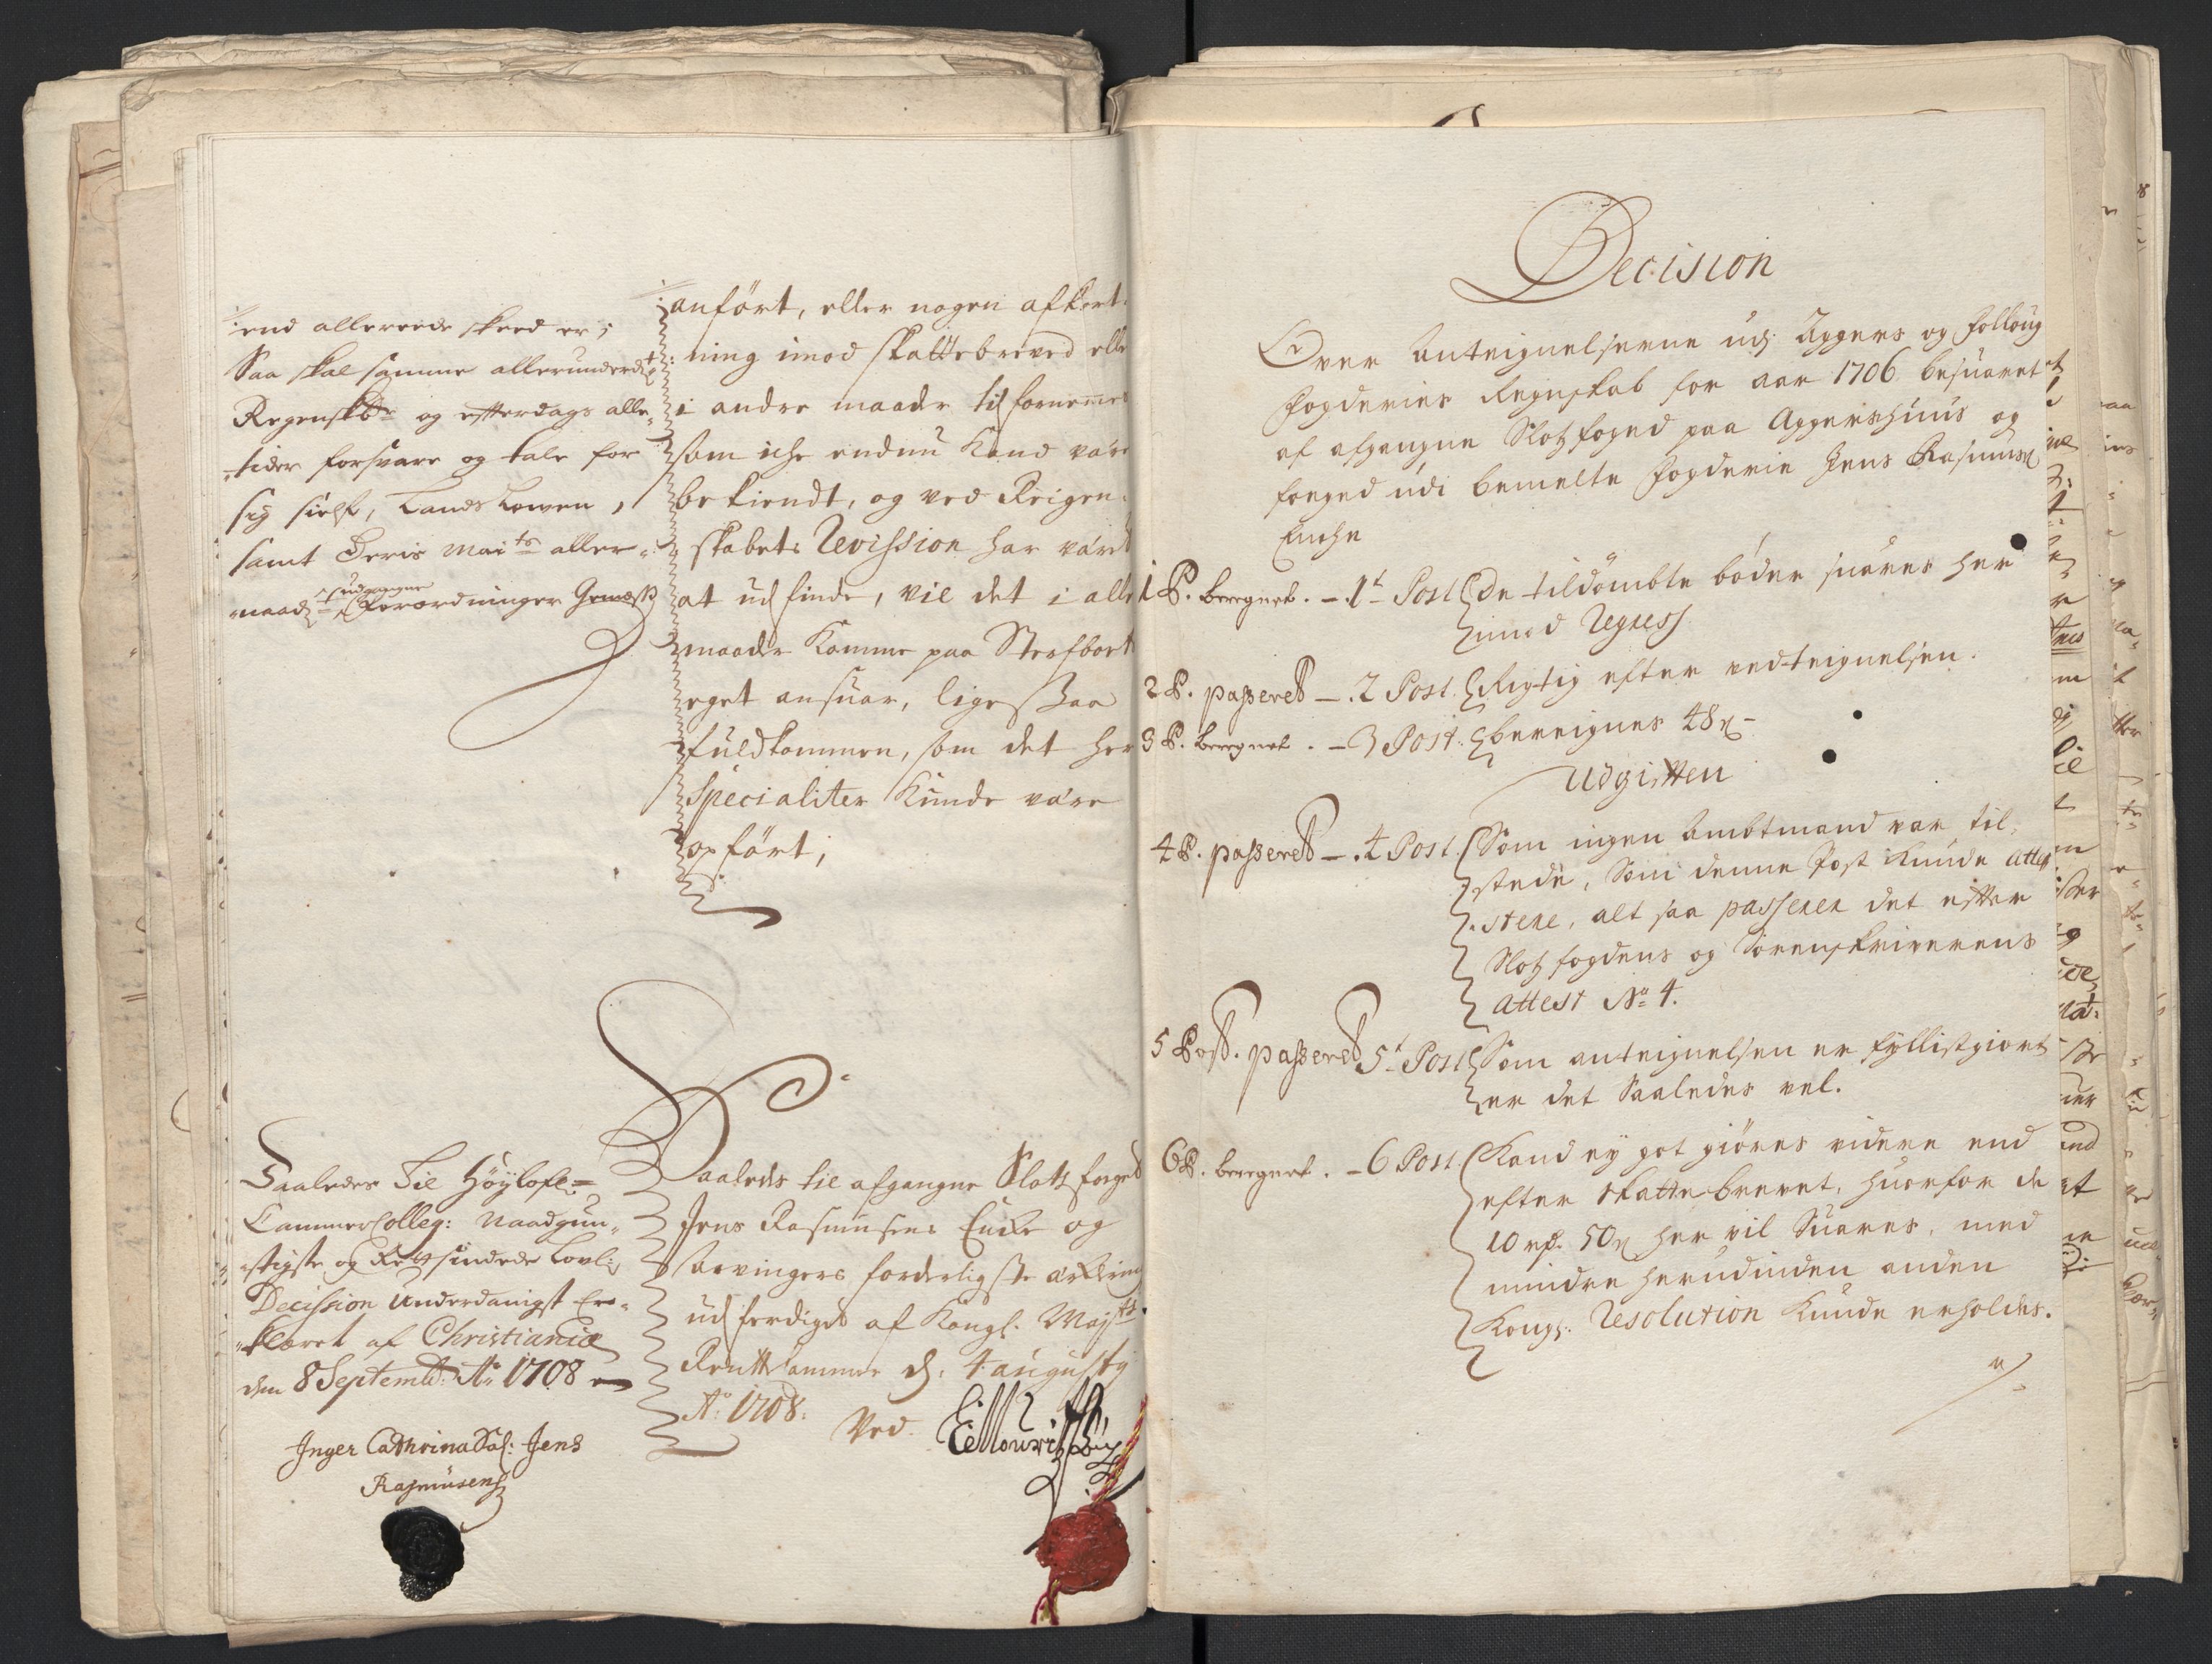 :end allereede skeed er;
Saa skal samme allerunderd:
Regenskb: og efterdags alle„
„tider forsvare og tale for
sig sielf, Lands Lowen,
samt Deris Mai:ts aller„
udgangne
naad: Forordninger Gemæss
anført, eller nogen afkort:
:ning imod skattebreved elle
i andre maade til fornemme
som iche endnu Kand være
bekiendt, og ved Reigen„
skabets Revission har været
at udfinde, vil det i alle
maade Komme paa Sterfboets
eget ansuar, lige saa
fuldkommen, som det her
Specialiter Kunde være
opført;
Saaledes Til Høylofl:
CammerColleg: Naadgun„
„stigste og Retsindede Lovl:
Decission Underdanigst Er„
„klæret af Christiania
den 8 Septemb: Ao 1708
Inger Cathrina Sal: Jens
Rasmusens
Saaledes til afgangne Slotz foged
Jens Rasmusens Enke og
Arvingers forderligste erklering
udferdiget af Kongl. Mayts
Rentte Cammer d. 4 augusty
Ao 1708.
Ved.
Decision
Over Anteignelserne udj Aggers og Folloug
Fogderies Regnskab for aar 1706 besuaret
af afgangne Slotzfoged paa Aggershuus og
foeged udi bemelte Fogderie Jens Rasmusens
Enche
1 P. beregnet. – 1t Post De tildømbte bøder suares her
imod Regress
2 P. passeret – 2 Post Rigtig efter ved-teignelsen.
3 P. beregnet. – 3 Post. bereignes 48 s –
Udgiften
4 P. passeret – 4 Post Som ingen Ambtmand var til„
stede, Som denne Post kunde atte„
„stere, alt saa passerer det efter
Slotzfogdens og Sorenskriverens
attest No 4.
5 Post. passeret 5t Post Som anteignelsen er fyllistgiort
er det Saaledes vel.
6 P. beregnet. – 6 Post. Kand ey got giøres videre end
efter Skattebrevet, huorfor de
10 rd. 50 s her vil Suares, med
mindre herudinden anden
Kongl: Resolution Kunde erholdes.